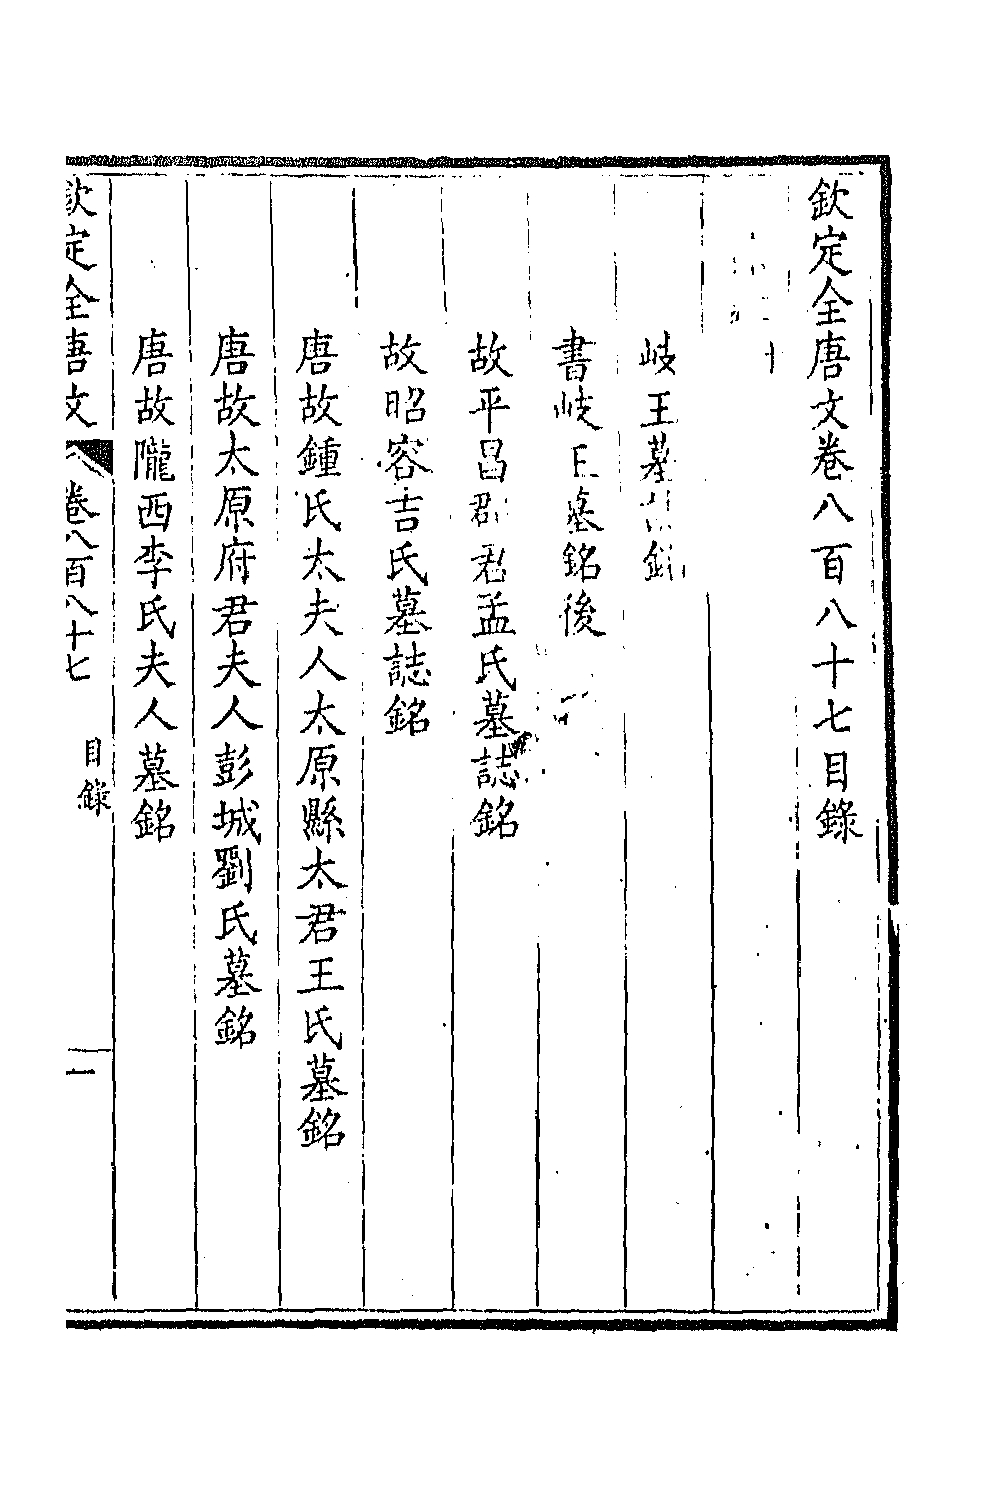 欽定全唐文卷八百八十七目錄
岐王墓銘
書岐王墓銘後
故平昌郡君孟氏墓誌銘
故昭容吉氏墓誌銘
唐故鍾氏太夫人太原縣太君王氏墓銘
唐故太原府君夫人彭城劉氏墓銘
唐故隴西李氏夫人墓銘
欽定全唐文 卷八百八十七 目錄 一